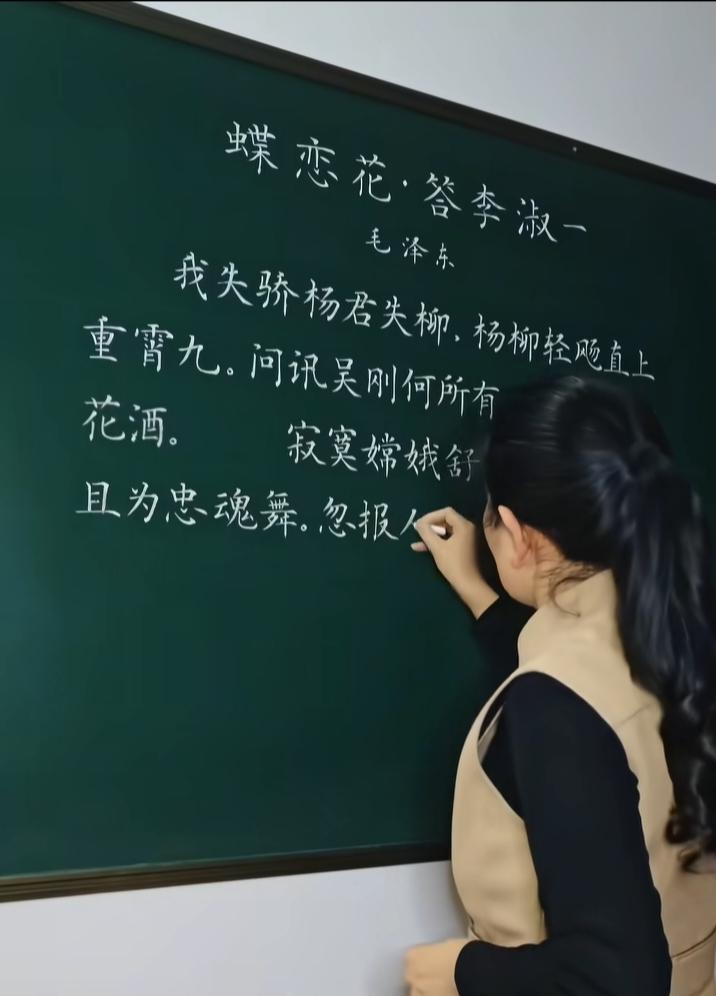 蝶恋花·答李淑一
毛泽东
我失骄杨君失柳,杨柳轻飏直上
重霄九。问讯吴刚何所有
花酒。 寂寞嫦娥舒
且为忠魂舞。忽报人